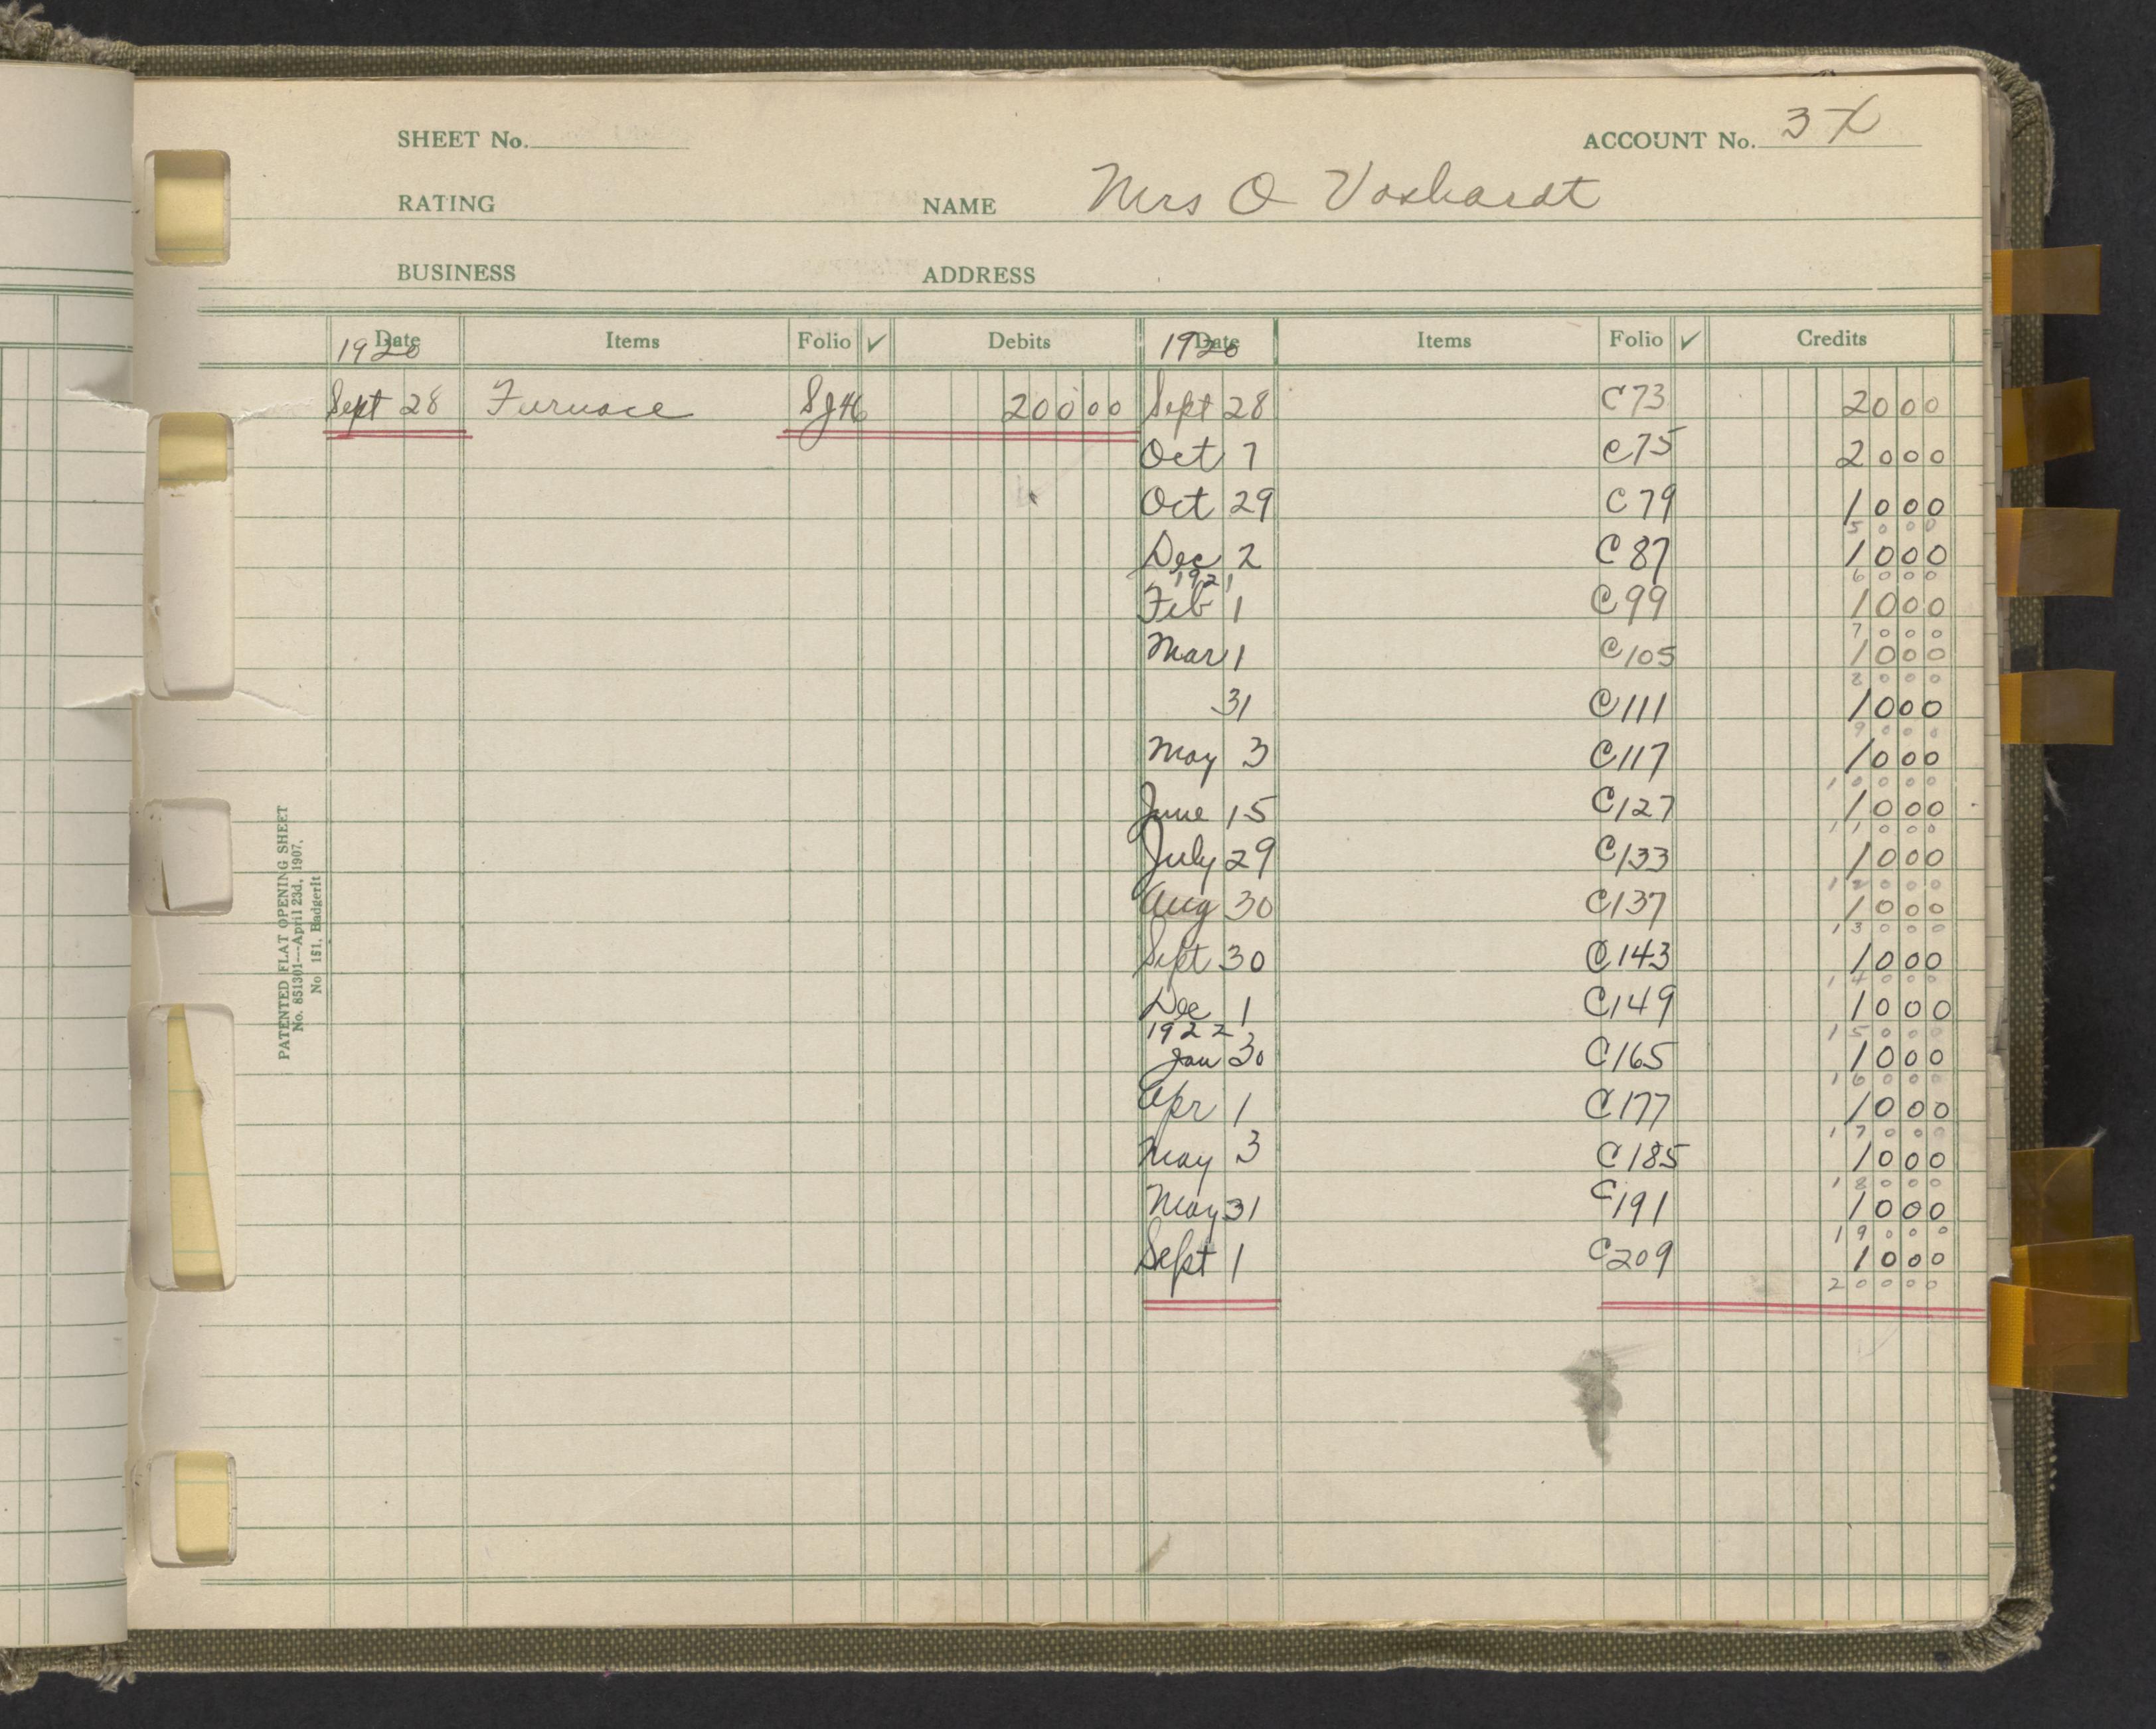 SHEET No.
ACCOUNT No. 37
RATING
NAME Mrs O Voshardt
BUSINESS
ADDRESS
Date Items Folio ✓ Debits Date Items Folio ✓ Credits
1920 1920
Sept 28 Furnace SJ46 200 00 Sept 28 C73 20 00
Oct 7 C75 20 00
Oct 29 C79 10 00
50 00
Dec 2 C87 10 00
1921 60 00
Feb 1 C99 10 00
70 00
Mar 1 C105 10 00
80 00
31 C111 10 00
90 00
May 3 C117 10 00
100 00
June 15 C127 10 00
110 00
July 29 C133 10 00
120 00
Aug 30 C137 10 00
130 00
Sept 30 C143 10 00
140 00
Dec 1 C149 10 00
1922 150 00
Jan 30 C165 10 00
160 00
Apr 1 C177 10 00
170 00
May 3 C185 10 00
180 00
May 31 C191 10 00
190 00
Sept 1 C209 10 00
200 00
PATENTED FLAT OPENING SHEET
No. 851301—April 23d, 1907.
No 151, Badgerlt